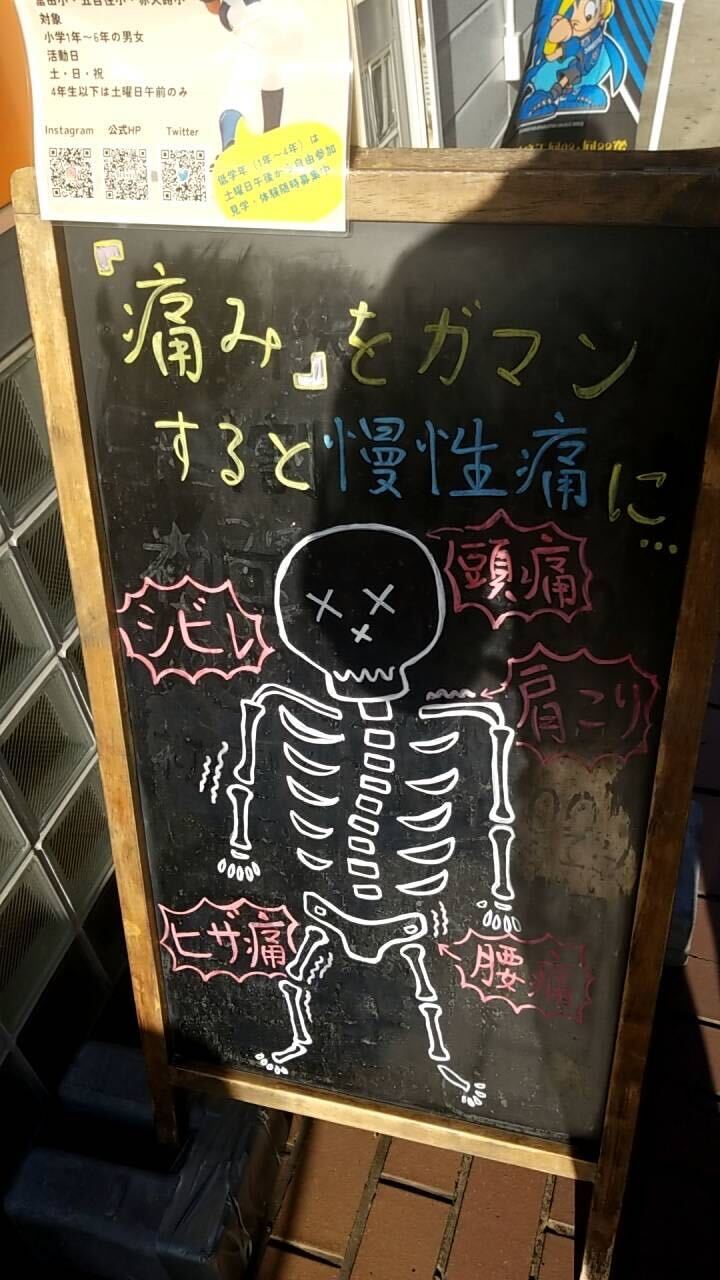 対象
小学1年〜6年の男女
活動日
土・日・祝
4年生以下は土曜日午前のみ
Instagram 公式HP Twitter
低学年（1年〜4年）は
土曜日午後から自由参加
見学・体験随時募集中
『痛み』をガマン
すると慢性痛に…
頭痛
シビレ
肩こり
ヒザ痛
腰痛